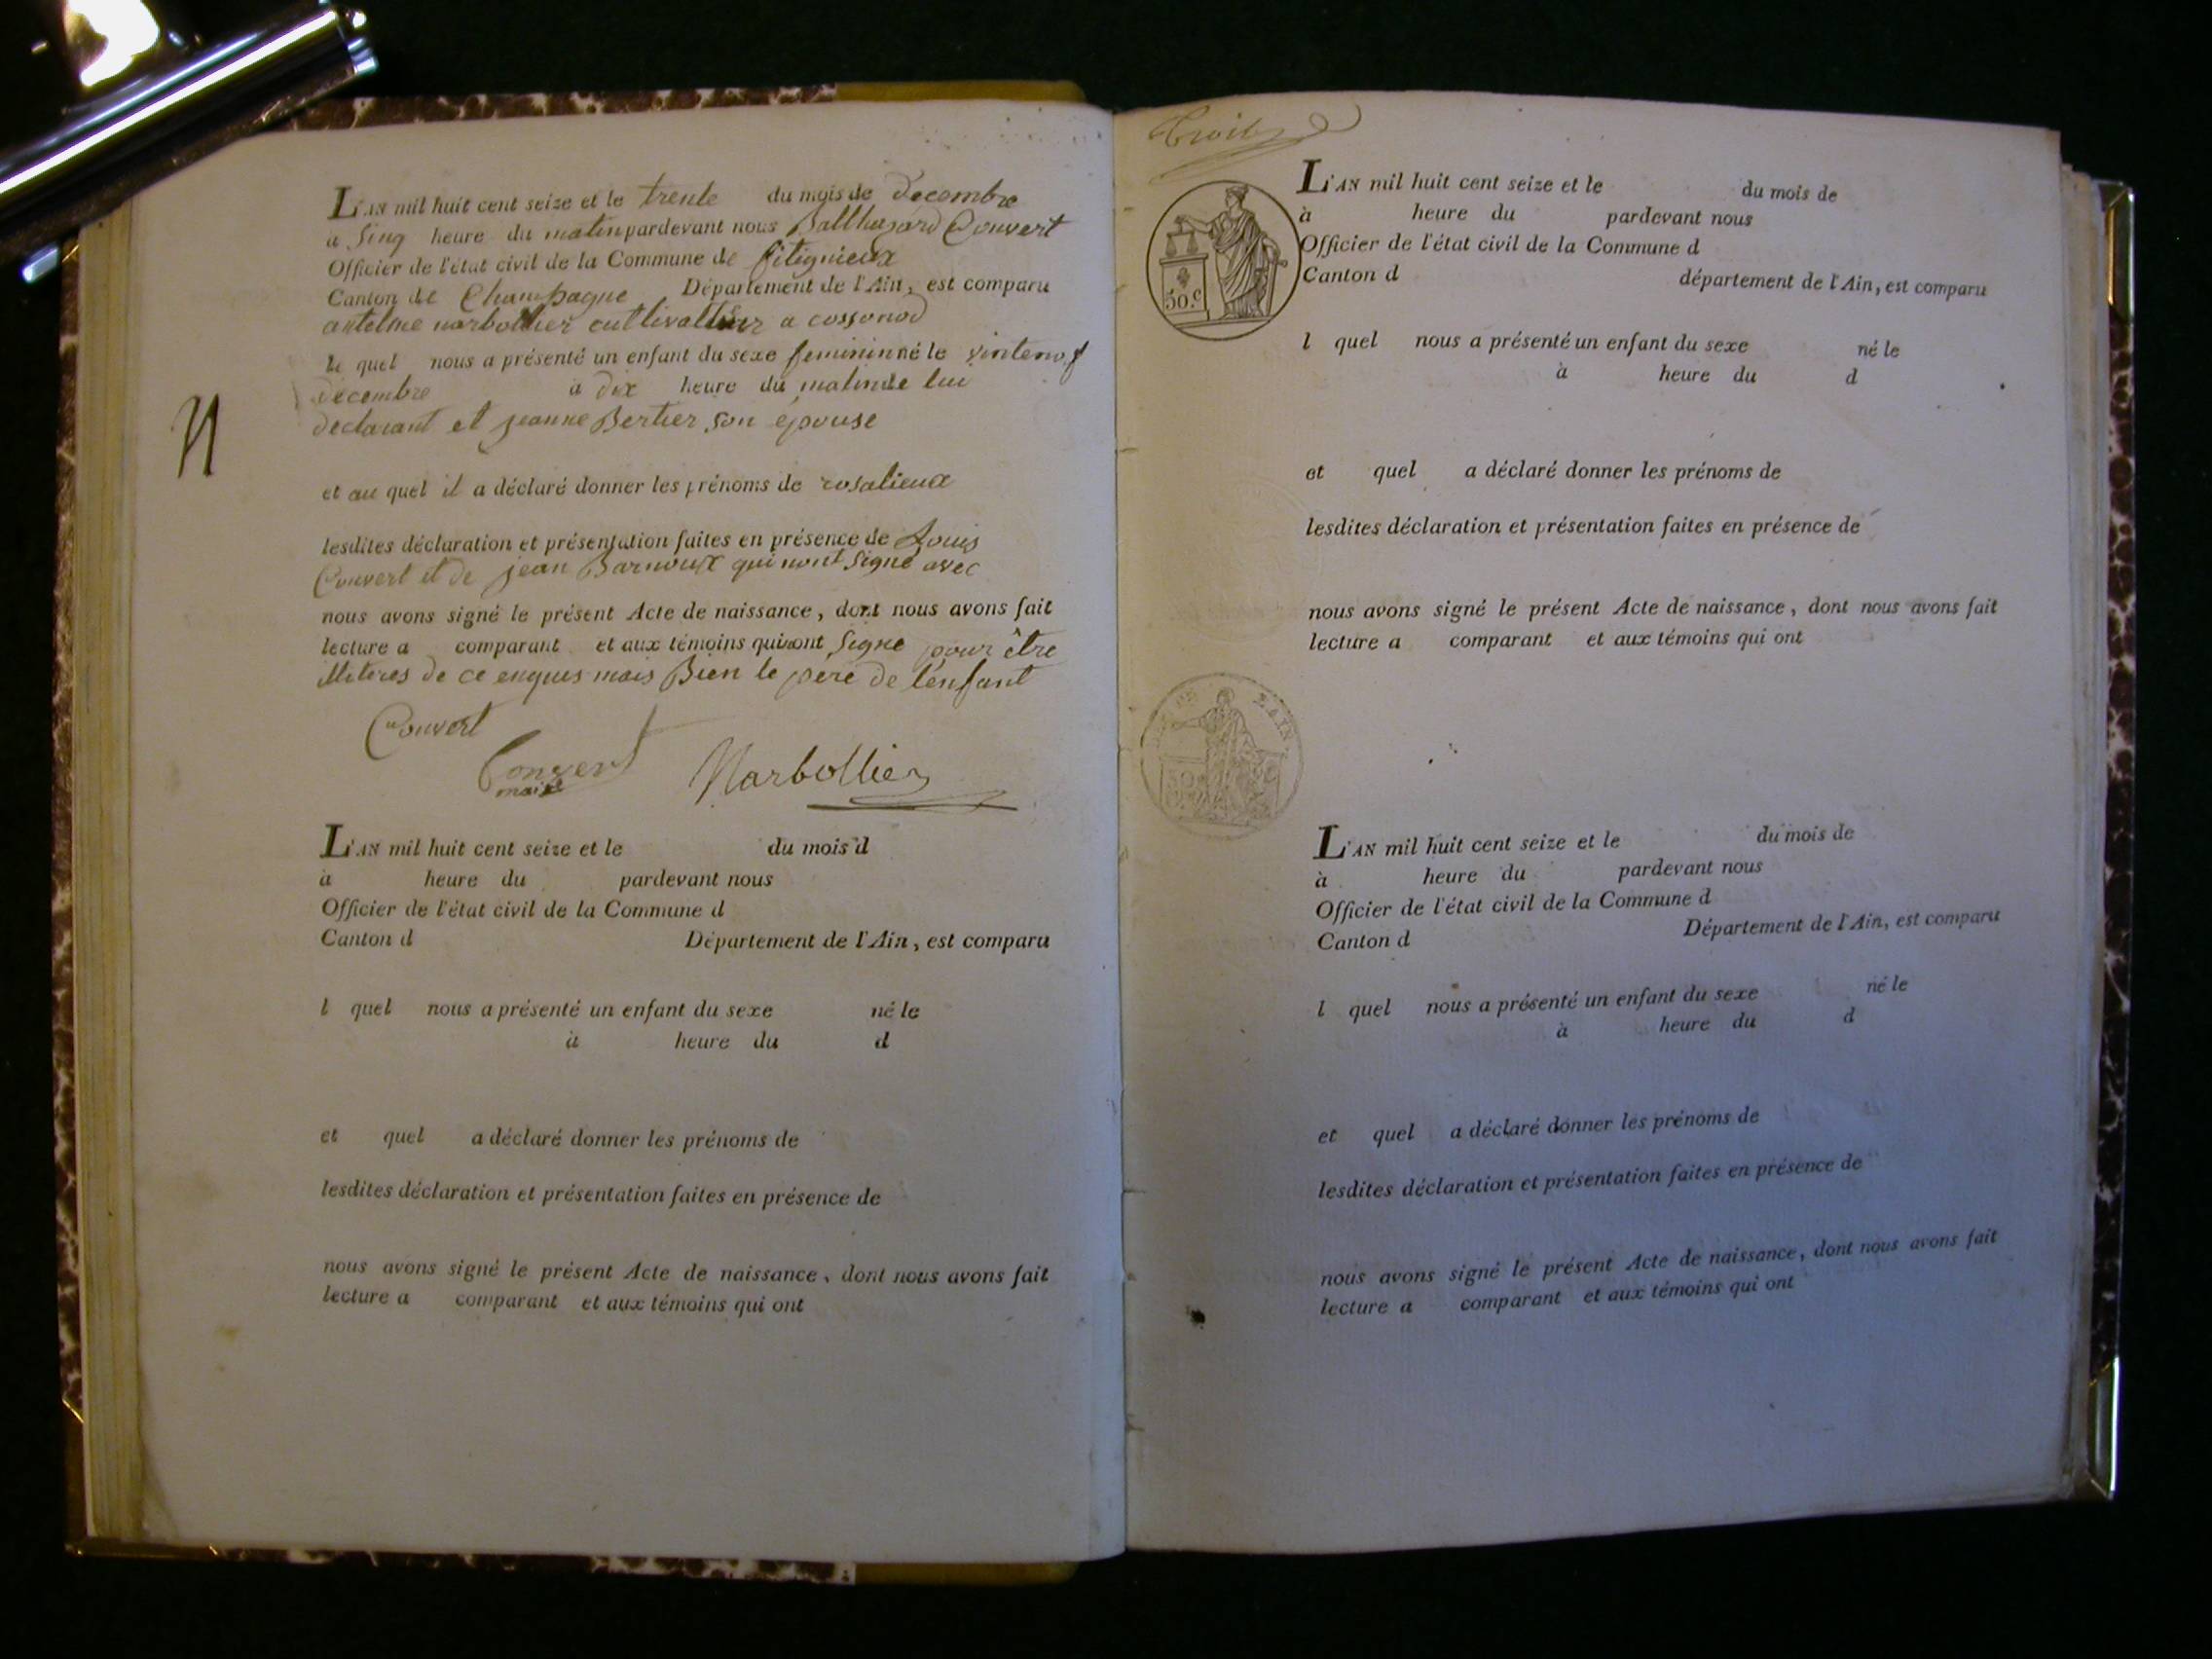 L'AN mil huit cent seize et le trente du mois de decembre
a Sinq heure du matin pardevant nous Balthazard Convert
Officier de l'état civil de la Commune de fitignieux
Canton de Champagne Département de l'Ain, est comparu
antelme narbollier cultivatteur a cossonod
le quel nous a présenté un enfant du sexe feminin né le vintenof
decembre à dix heure du matin de lui
declarant et jeanne Bertier son épouse
et au quel il a déclaré donner les prénoms de rosalieux
lesdites déclaration et présentation faites en présence de Louis
Convert et de jean Barnoux qui nont Signé avec
nous avons signé le présent Acte de naissance, dont nous avons fait
lecture a comparant et aux témoins qui nont Signé pour être
illitires de ce enquis mais Bien le père de l'enfant
Convert
Convert
maire
Narbollier
N
L'AN mil huit cent seize et le du mois d
à heure du pardevant nous
Officier de l'état civil de la Commune d
Canton d Département de l'Ain, est comparu
l quel nous a présenté un enfant du sexe né le
à heure du d
et quel a déclaré donner les prénoms de
lesdites déclaration et présentation faites en présence de
nous avons signé le présent Acte de naissance, dont nous avons fait
lecture a comparant et aux témoins qui ont
Troise
50.c
L'AN mil huit cent seize et le du mois de
à heure du pardevant nous
Officier de l'état civil de la Commune d
Canton d département de l'Ain, est comparu
l quel nous a présenté un enfant du sexe né le
à heure du d
et quel a déclaré donner les prénoms de
lesdites déclaration et présentation faites en présence de
nous avons signé le présent Acte de naissance, dont nous avons fait
lecture a comparant et aux témoins qui ont
L'AN mil huit cent seize et le du mois de
à heure du pardevant nous
Officier de l'état civil de la Commune d
Canton d Département de l'Ain, est comparu
l quel nous a présenté un enfant du sexe né le
à heure du d
et quel a déclaré donner les prénoms de
lesdites déclaration et présentation faites en présence de
nous avons signé le présent Acte de naissance, dont nous avons fait
lecture a comparant et aux témoins qui ont